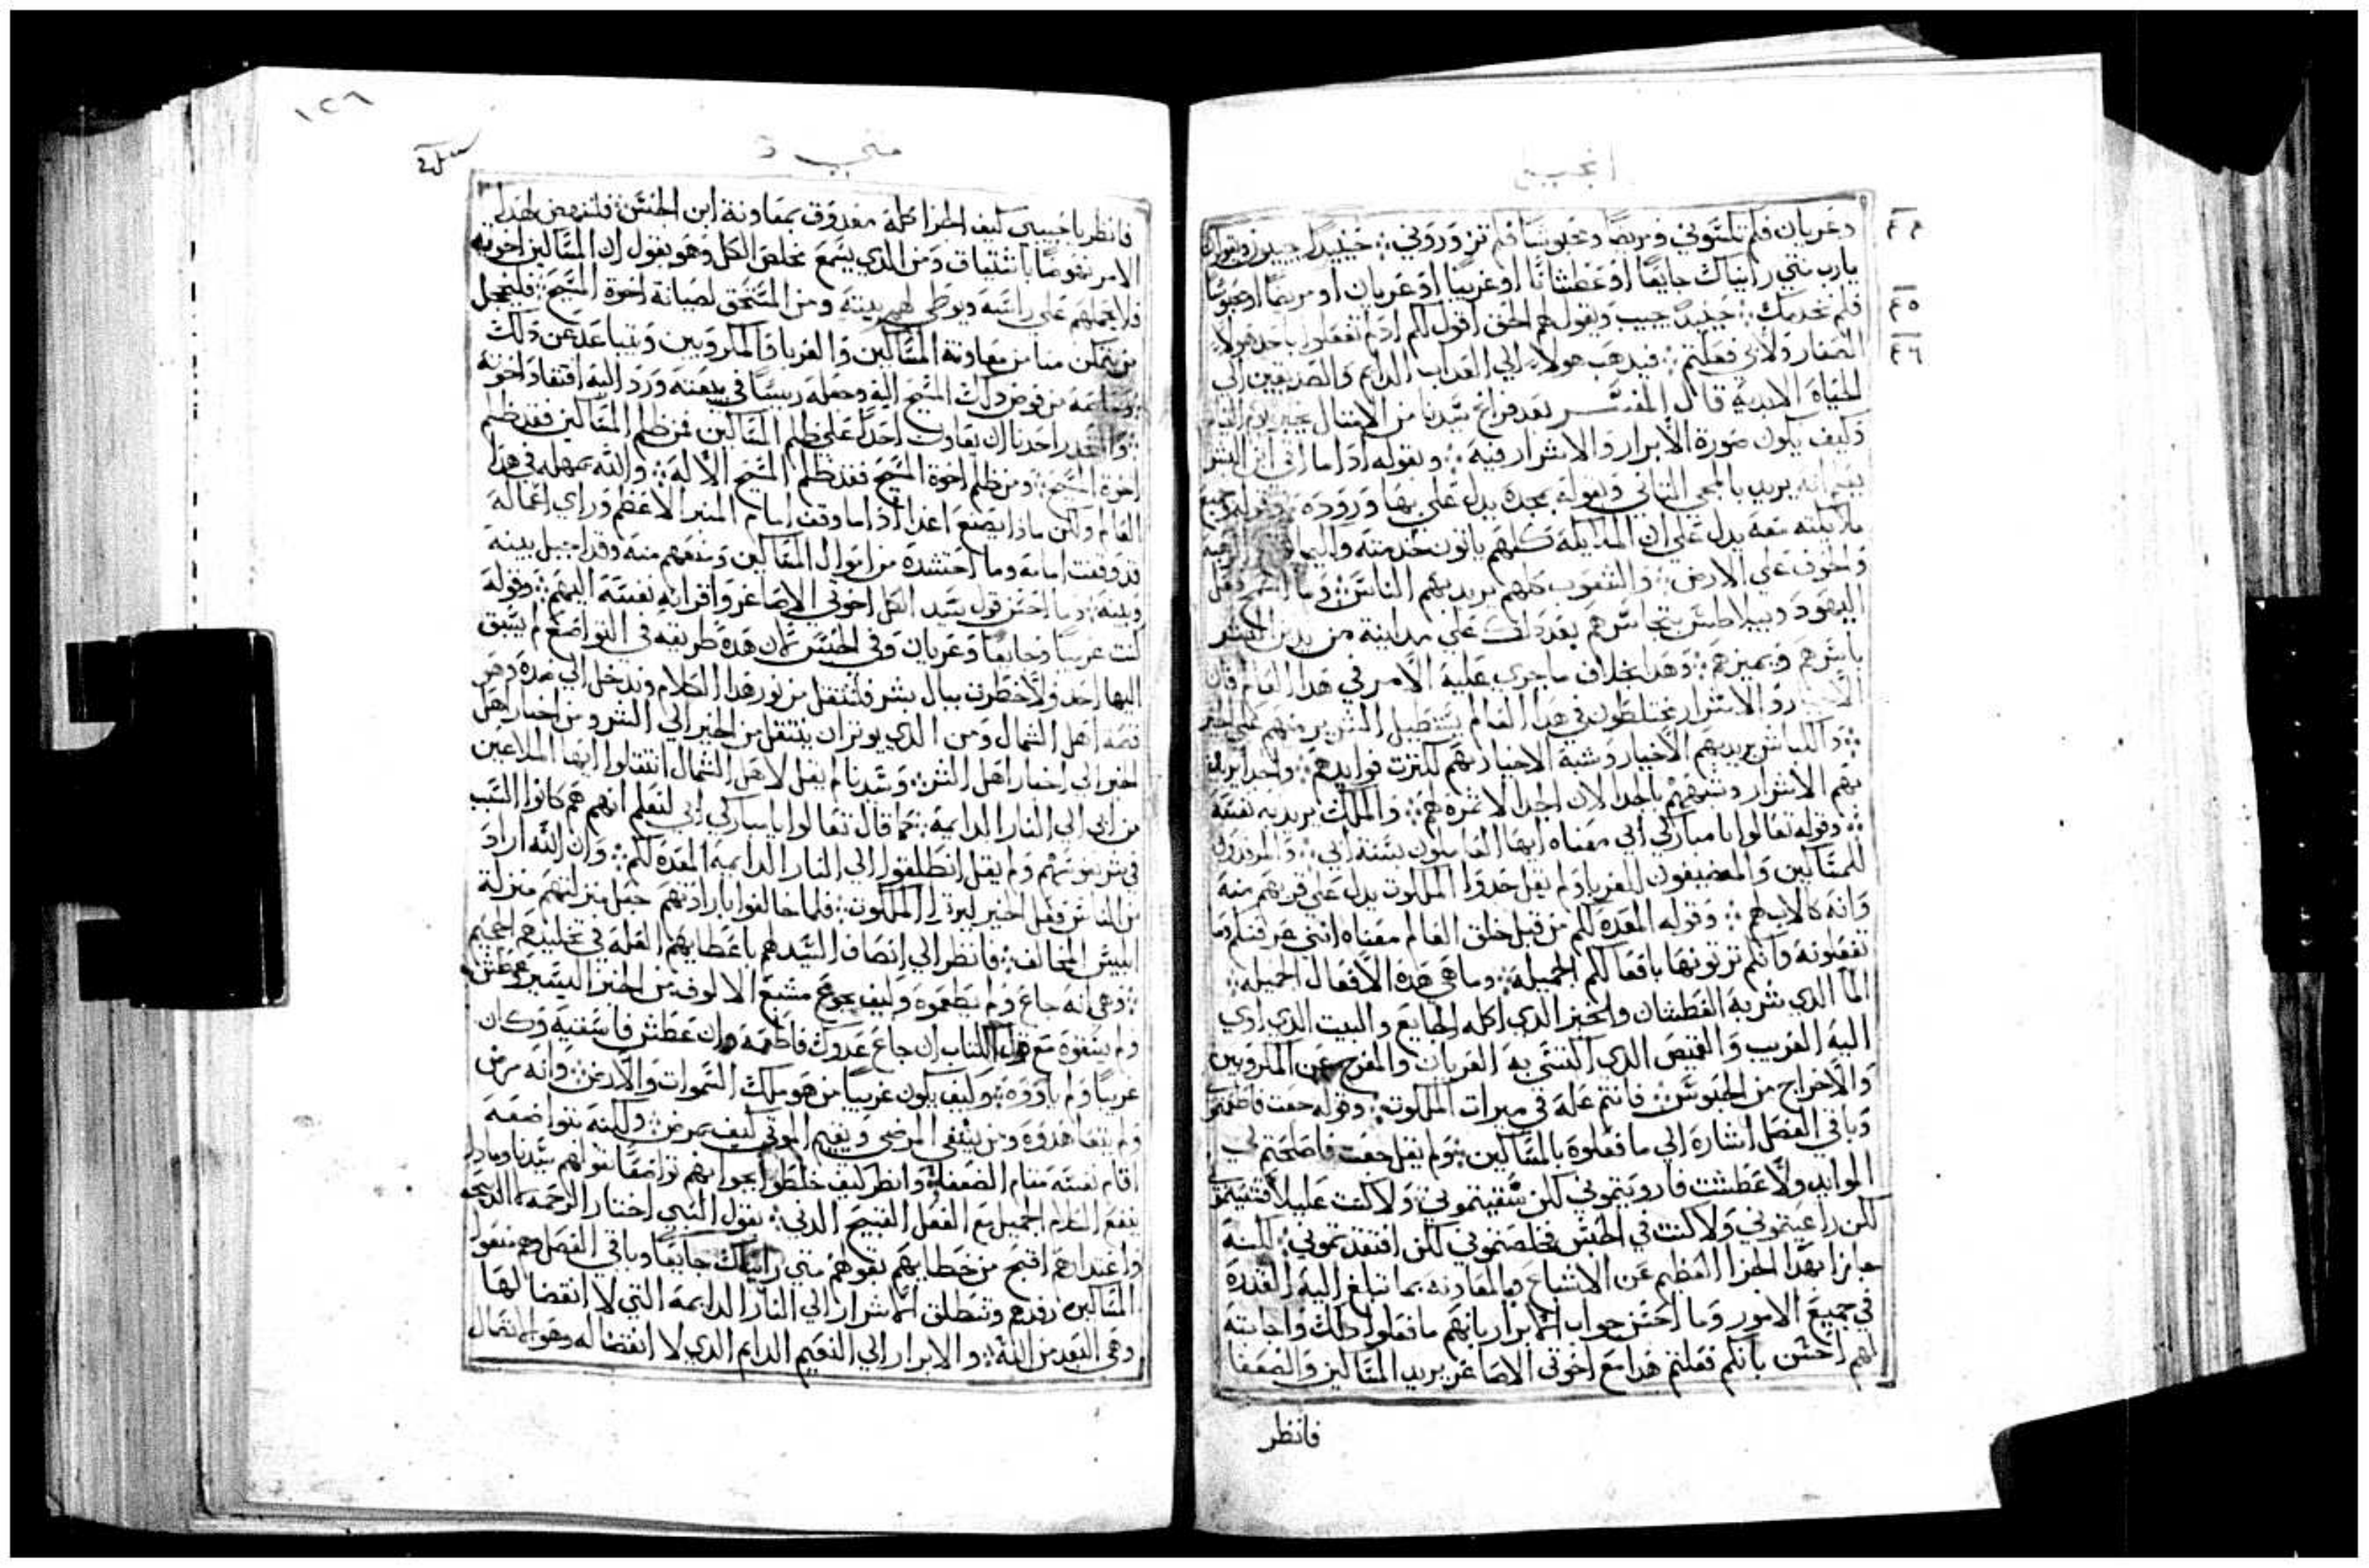 انجيل
وعريان فلم تكسوني ومريضا ومحبوسا فلم تزوروني ⁘ حينيدا يجيبون ويقولون
يارب متي رايناك جايعا او عطشانا او غريبا او عريان او مريضا او محبوسا
فلم نخدمك ⁘ حينيدا يجيب ويقول لهم الحق اقول لكم اد لم تفعلوا باحد هولاء
الصغار ولا بي فعلتم ⁘ فيدهب هولاء الي العداب الدايم والصديقين الي
الحياة الابدية قال المفسر بعد فراغ سيدنا من الامتال يخبر
وكيف يكون صورة الابرار والاشرار فيه ⁘ وبقوله ادا ما اتي ابن البشر
يفهم انه يريد بالمجي التاني وبقوله بمجده يدل علي بها وروده ⁘ وقوله جميع
ملايكته معه يدل علي ان الملايكة كلهم ياتون لخدمته
والخوف علي الارض ⁘ والشعوب كلهم يريد بهم الناس ⁘ وما
اليهود وبيلاطس
باسرهم ويميزهم ⁘ وهدا بخلاف ما جري عليه الامر في هدا العالم فان
والاشرار مختلطون في هدا العالم يستطيل الشرير منهم علي الخير
⁘ والكباش يريد بهم الاخيار وشبه الاخيار بهم لكترت فوايدهم ⁘ والجدا يريد
بهم الاشرار وشبههم بالجدا لان الجدا لا تمره لهم ⁘ والملك يريد به نفسه
⁘ وقوله تعالوا يا مباركي ابي معناه ايها العاملون بسنة ابي ⁘ والمرفدون
للمساكين والمضيفون للغربا ولم يقل خدوا الملكوت يدل علي قربهم منه
وانه كالاب لهم ⁘ وقوله المعده لكم من قبل خلق العالم معناه انني عرفتكم وما
تفعلونه وانكم ترتونها بافعالكم الجميله ⁘ وما هي هده الافعال الجميله ⁘
الما الدي شربه العطشان والخبز الدي اكله الجايع والبيت الدي اوي
اليه الغريب والقميص الدي اكتسي به العريان والمفرج عن المكروبين
والاخراج من الحبوس ⁘ فانتم عله في ميرات الملكوت ⁘ وقوله جعت فاطعمتموني
وباقي الفصل اشارة الي ما فعلوه بالمساكين ⁘ ولم يقل جعت فاصلحتم لي
الموايد ولا عطشت فارويتموني لكن سقيتموني ⁘ ولا كنت عليلا فشفيتموني
لكن راعيتموني ولا كنت في الحبس فخلصتموني لكن افتقدتموني ⁘ لكنه
جازا بهدا الجزا العظيم عن الاشباع والمعاونه بما تبلغ اليه القدره
في جميع الامور وما احسن جواب الابرار بانهم ما فعلوا دلك واجابته
لهم احسن بانكم فعلتم هدا مع اخوتي الاصاغر يريد المساكين والضعفا
فانظر
١٢٦
متي
فانظر يا حبيبي كيف الجزا كله معدوق بمعاونة ابن الجنس ⁘ فلننهض لهدا
الامر نهوضا باشتياق ومن الدي يسمع مخلص الكل وهو يقول ان المساكين اخوته
فلا يحملهم علي راسه ويوطي لهم بيته ومن المستحق لصيانة اخوة المسيح ⁘ فليخجل
من يتمكن منا من معاونة المساكين والغربا والمكروبين ويتباعد عن دلك
من فوض دلك المسيح اليه وجعله رييسا في بيعته ورد اليه افتقاد اخوته
⁘ احدنا ان يعاون احدا علي ظلم المساكين فمن ظلم المساكين فقد ظلم
اخوة المسيح ⁘ ومن ظلم اخوة المسيح فقد ظلم المسيح الاله ⁘ والله يمهله في هدا
العالم ولكن مادا يصنع اغدا ادا ما وقف امام المنبر الاعظم وراي اعماله
قد وقفت امامه وما احتشده من اموال المساكين ومنعهم منه وقد احيل بينه
وبينه ⁘ وما احسن قول سيد الكل اخوتي الاصاغر واقرانه نفسه اليهم ⁘ وقوله
كنت غريبا وجايعا وعريان وفي الحبس لان هده طريقه في التواضع لم يسبق
اليها احد ولا خطرت ببال بشر فلننتقل من نور هدا الكلام وندخل الي ضده وهو
قصه اهل الشمال ومن الدي يوتر ان ينتقل من الخير الي الشر ومن اخبار اهل
الخير الي اخبار اهل الشر ⁘ وسيدنا لم يقل لاهل الشمال انتقلوا ايها الملاعين
من ابي الي النار الدايمه ⁘ كما قال تعالوا يا مباركي ابي لنعلم انهم هم كانوا السبب
في شر نفوسهم ولم يقل انطلقوا الي النار الدايمه المعده لكم ⁘ وان الله اراد
من الناس فعل الخير ليرتوا الملكوت ⁘ فلما خالفوا بارادتهم جعل منزلتهم منزلة
ابليس المخالف ⁘ فانظر الي انصاف السيد لهم باعطايهم العله في تخليدهم الجحيم
⁘ وهي انه جاع ولم يطعموه وكيف يجوع مشبع الالوف من الخبز اليسير وعطش
ولم يسقوه مع قول الكتاب ان جاع عدوك فاطعمه وان عطش فاسقيه وكان
غريبا ولم ياووه ⁘ وكيف يكون غريبا من هو ملك السموات والارض ⁘ وانه مرض
ولم يتعاهدوه ومن يشفي المرضي ويقيم الموتي كيف يمرض ⁘ ولكنه بتواضعه
اقام نفسه مقام الضعفا ⁘ وانظر كيف خلطوا بجوابهم تواضعا بقولهم سيدنا وما دا
ينفع الكلام الجميل مع الفعل القبيح الدني ⁘ يقول النبي اختار الرحمه لا الدبيحه
واعتدارهم اقبح من خطاياهم بقولهم متي رايناك جايعا وباقي الفصل وهم منعوا
المساكين رفدهم وتنطلق الاشرار الي النار الدايمه التي لا انقضا لها
وهي البعد من الله ⁘ والابرار الي النعيم الدايم الدي لا انقضا له وهو الاتصال